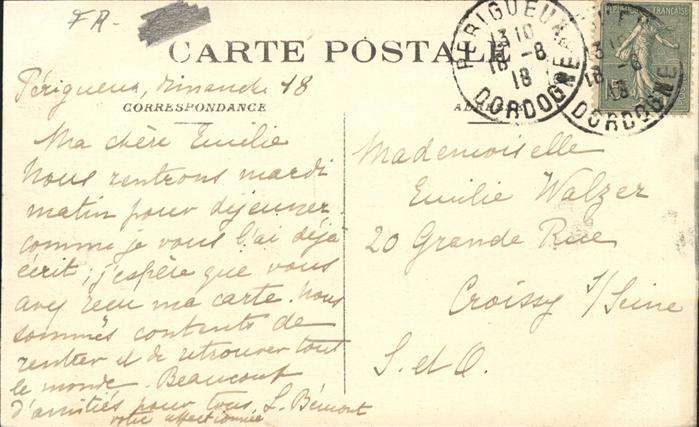 FR-
CARTE POSTALE
Périgueux, Dimanche 18
CORRESPONDANCE
Ma chère Emilie
Nous rentrons mardi
matin pour déjeuner.
comme je vous l'ai déjà
écrit; j'espère que vous
avez recu ma carte. Nous
sommes contents de
rentrer et de retrouver tout
le monde. Beaucoup
d'amitiés pour tous,
votre affectionnée
L. Bémont
ADRESSE
Mademoiselle
Emilie Walzer
20 Grande Rue
Croissy s/Seine
S. et O.
PERIGUEUX
13 10
18 -8
18
DORDOGNE
13 10
18 -8
18
DORDOGNE